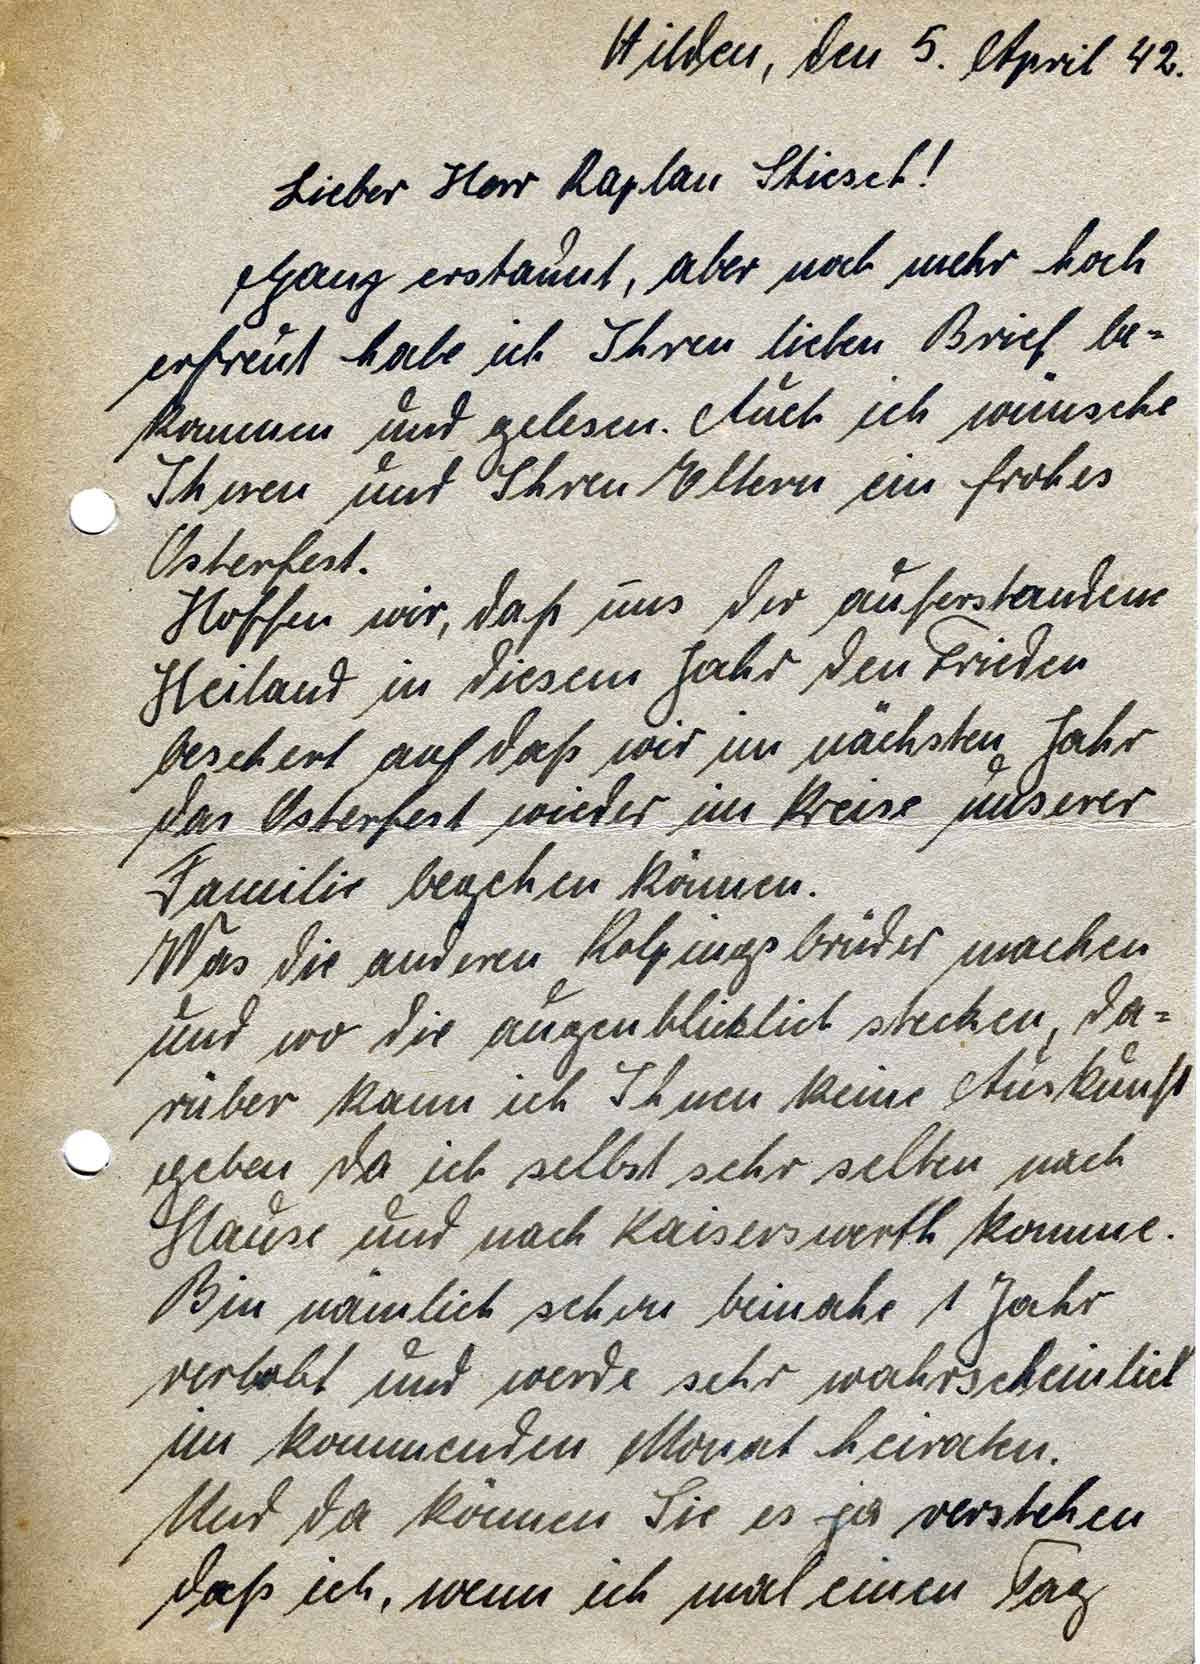 Hilden, den 5. April 42.
Lieber Herr Kaplan Stiesch!
Ganz erstaunt, aber noch mehr hoch
erfreut habe ich Ihren lieben Brief be=
kommen und gelesen. Auch ich wünsche
Ihnen und Ihren Eltern ein frohes
Osterfest.
Hoffen wir, daß uns der auferstandene
Heiland in diesem Jahr den Frieden
beschert auf daß wir im nächsten Jahr
das Osterfest wieder im Kreise unserer
Familie begehen können.
Was die anderen Kolpingsbrüder machen
und wo die augenblicklich stecken, da=
rüber kann ich Ihnen keine Auskunft
geben da ich selbst sehr selten nach
Hause und nach Kaiserswerth komme.
Bin nämlich schon beinahe 1 Jahr
verlobt und werde sehr wahrscheinlich
im kommenden Monat heiraten.
Und da können Sie es ja verstehen
daß ich, wenn ich mal einen Tag